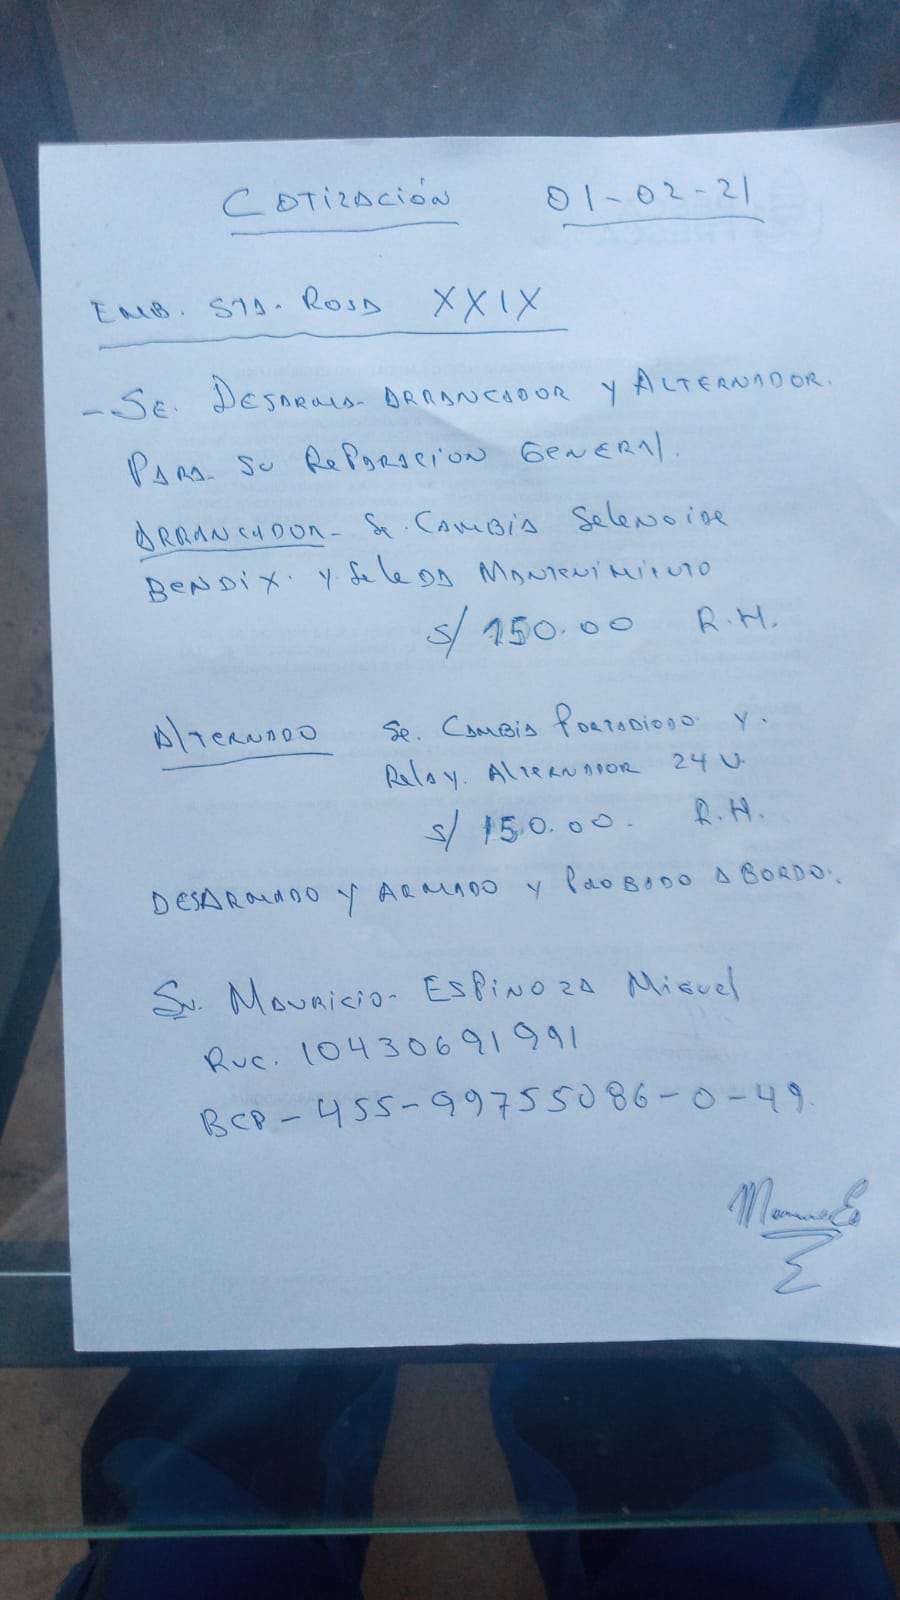 COTIZACIÓN 01-02-21
EMB. STA. ROSA XXIX
- SE. DESARMA ARRANCADOR Y ALTERNADOR.
PARA SU REPARACION GENERAL.
ARRANCADOR - Se. CAMBIA SeleNOIDE
BeNDIX. Y Se le DA MANTENIMIENTO
S/ 150.00 R.H.
AlTERNADO Se. CAMBIA PORTADIODO Y.
Relay. AlTERNADOR 24 V.
S/ 150.00. R.H.
DESARMADO Y ARMADO Y PROBADO A BORDO.
Sr. MAURICIO - ESPINOZA MIGUel
RUC. 10430691991
BCP - 455-99755086-0-49.